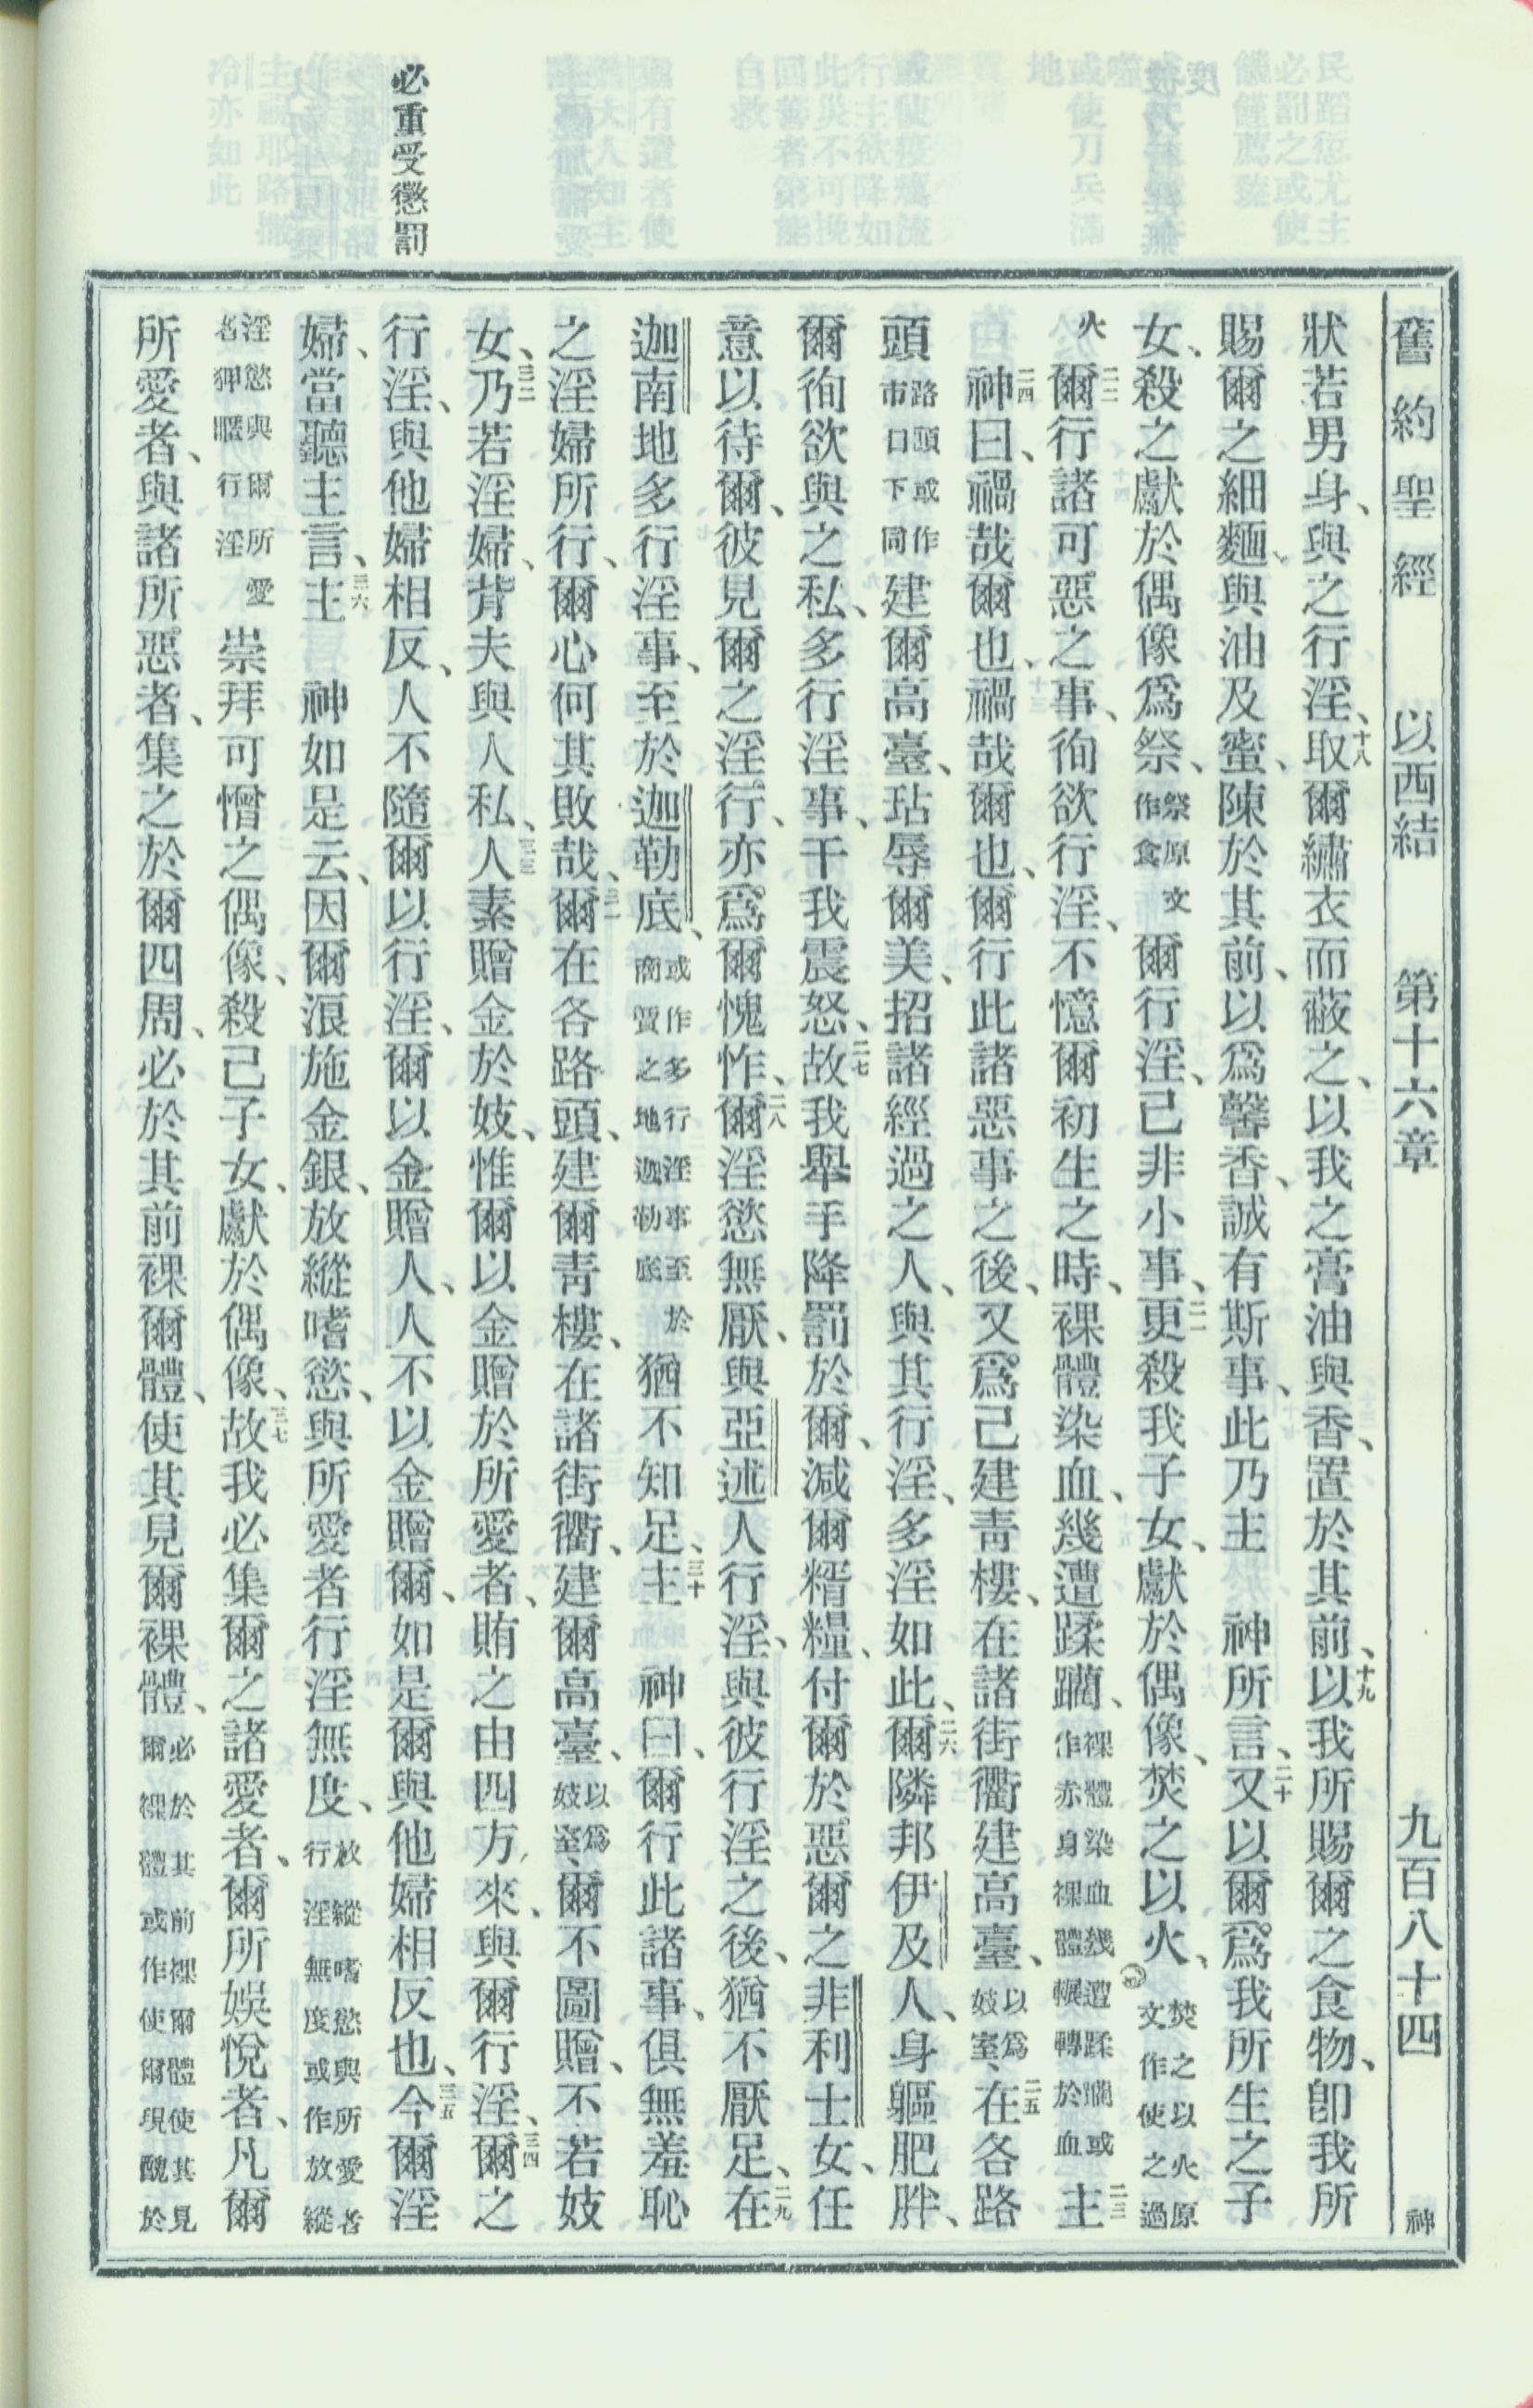 必重受懲罰
舊約聖經 以西結 第十六章 九百八十四 神
狀若男身、與之行淫、十八取爾繡衣而蔽之、以我之膏油與香、置於其前、十九以我所賜爾之食物、卽我所
賜爾之細麵、與油及蜜、陳於其前、以爲馨香、誠有斯事、此乃主 神所言、二十又以爾爲我所生之子
女、殺之獻於偶像爲祭、祭原文作食 爾行淫、已非小事、二一更殺我子女、獻於偶像、焚之以火、焚之以火原文作使之過
火 二二爾行諸可惡之事、徇欲行淫、不憶爾初生之時、裸體染血、幾遭蹂躪、裸體染血幾遭蹂躪或作赤身裸體輾轉於血 二三主
二四神曰、禍哉爾也、禍哉爾也、爾行此諸惡事之後、又爲己建靑樓、在諸街衢建高臺、以爲妓室、二五在各路
頭路頭或作市口下同建爾高臺、玷辱爾美、招諸經過之人、與其行淫、多淫如此、二六爾隣邦伊及人、身軀肥胖、
爾徇欲與之私、多行淫事、干我震怒、二七故我舉手降罰於爾、減爾糈糧、付爾於惡爾之非利士女、任
意以待爾、彼見爾之淫行、亦爲爾愧怍、二八爾淫慾無厭、與亞述人行淫、與彼行淫之後、猶不厭足、二九在
迦南地多行淫事、至於迦勒底、或作多行淫事至於商賈之地迦勒底 猶不知足、三十主 神曰、爾行此諸事、俱無羞恥
之淫婦所行、爾心何其敗哉、三一爾在各路頭、建爾靑樓、在諸街衢、建爾高臺、以爲妓室、爾不圖贈、不若妓
女、三二乃若淫婦、背夫與人私、三三人素贈金於妓、惟爾以金贈於所愛者、賄之由四方來、與爾行淫、三四爾之
行淫、與他婦相反、人不隨爾以行淫、爾以金贈人、人不以金贈爾、如是爾與他婦相反也、三五今爾淫
婦、當聽主言、三六主 神如是云、因爾浪施金銀、放縱嗜慾、與所愛者行淫無度、放縱嗜慾與所愛者行淫無度或作放縱
淫慾與爾所愛者狎暱行淫 崇拜可憎之偶像、殺己子女、獻於偶像、三七故我必集爾之諸愛者、爾所娛悅者、凡爾
所愛者、與諸所惡者、集之於爾四周、必於其前裸爾體、使其見爾裸體、必於其前裸爾體使其見爾裸體或作使爾現醜於